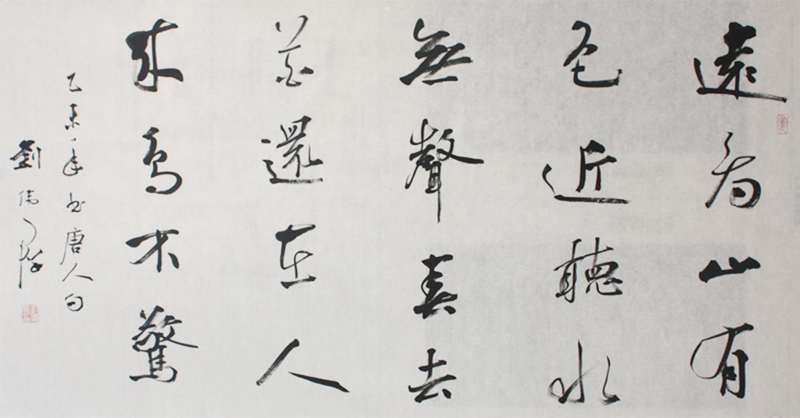 遠看山有
色近聽水
無聲春去
花還在人
来鳥不驚
乙未年书唐人句
劉